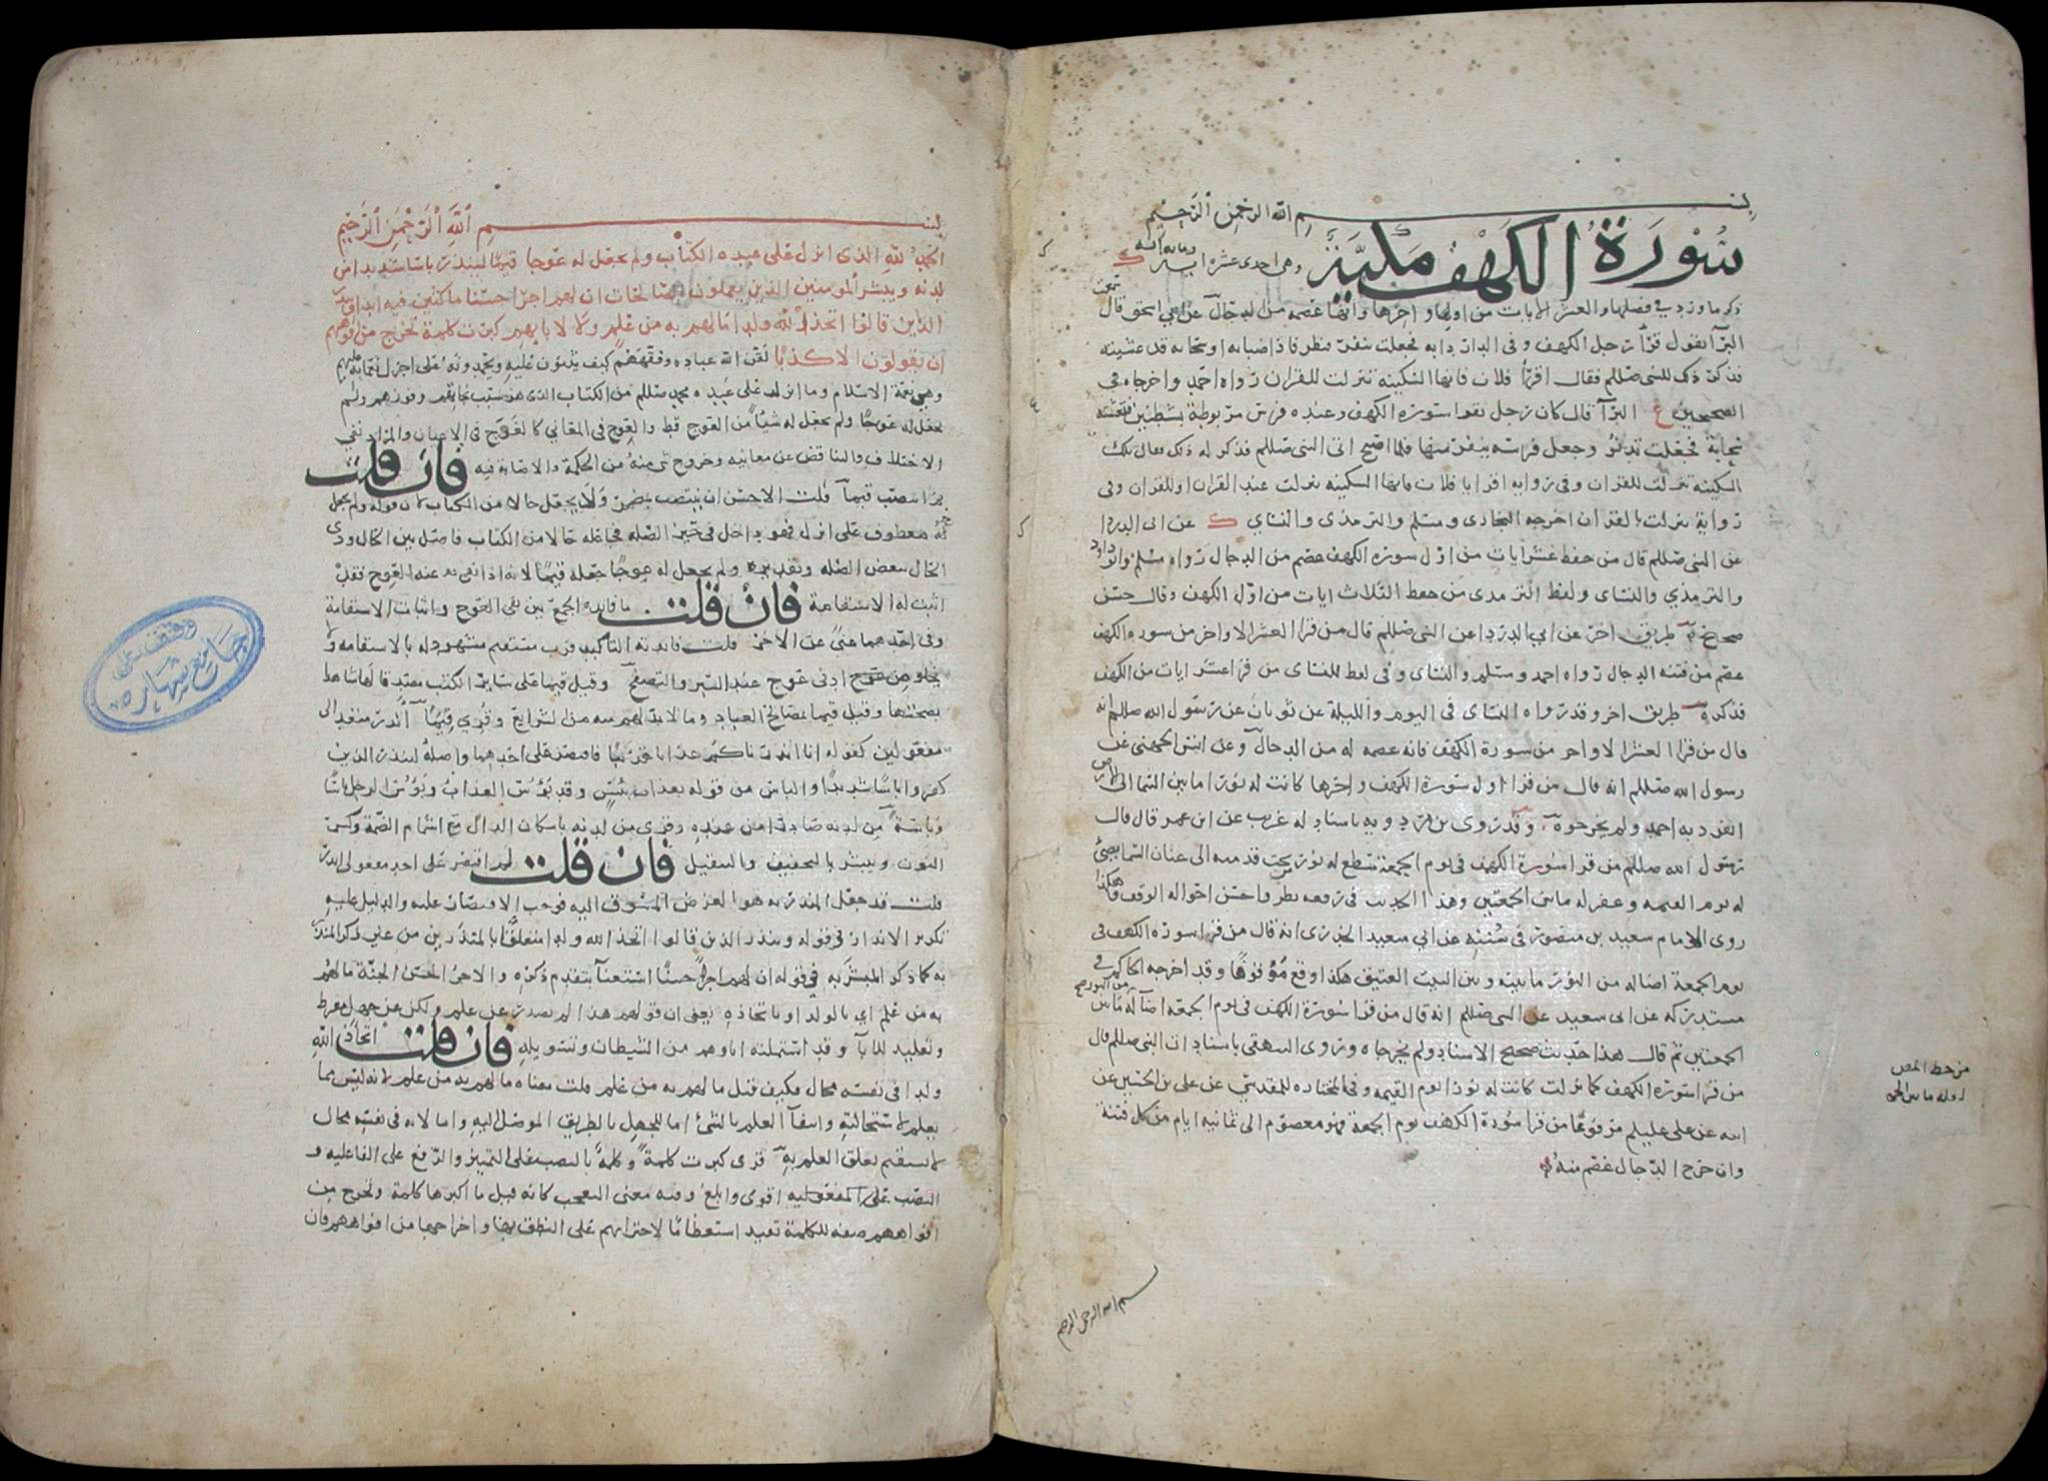 بسم الله الرحمن الرحيم
سورة الكهف مكية وهي احدى عشرة اية ومايه ايه
ذكر ما ورد في فضلها والعشر الايات من اولها واخرها وانها عصمه من الدجال عن ابي اسحق قال سمعت
البرآ يقول قرأ رجل الكهف وفي الدار دابه فجعلت تنفر فنظر فاذا ضبابه او سحابه قد غشيته
فذكر ذلك للنبي صللم فقال اقرأ فلان فانها السكينه تنزلت للقران رواه احمد واخرجاه في
الصحيحين البرآ قال كان رجل يقرا سورة الكهف وعنده فرس مربوطة بشطنين فتغشته
سحابة فجعلت تدنو وجعل فرسه ينفر منها فلما اصبح اتى النبي صللم فذكر له ذلك فقال تلك
السكينة تنزلت للقران وفي روايه اقرا يا فلان فانها السكينه نزلت عند القران او للقران وفي
رواية نزلت بالقران اخرجه البخاري ومسلم والترمذي والنساي عن ابي الدردا
عن النبي صللم قال من حفظ عشر ايات من اول سورة الكهف عصم من الدجال رواه مسلم وابو داود
والترمذي والنساى ولفظ الترمدى من حفظ الثلاث ايات من اول الكهف وقال حسن
صحيح طريق اخر عن ابي الدردا عن النبي صللم قال من قرا العشر الاواخر من سورة الكهف
عصم من فتنه الدجال رواه احمد ومسلم والنساى وفي لفظ للنساى من قرا عشر ايات من الكهف
فذكره طريق اخر وقد رواه النساى في اليوم والليلة عن ثوبان عن رسول الله صللم انه
قال من قرا العشر الاواخر من سورة الكهف فانه عصمه له من الدجال وعن انس الجهني عن
رسول الله صللم انه قال من قرا اول سورة الكهف واخرها كانت له نورا ما بين السما الى الارض
انفرد به احمد ولم يخرجوه وقد روى بن مردويه باسناد له غريب عن ابن عمر قال قال
رسول الله صللم من قرا سورة الكهف في يوم الجمعة سطع له نور من تحت قدمه الى عنان السما يضئ
له يوم القيمه وغفر له ما بين الجمعتين وهذا الحديث في رفعه نظر واحسن احواله الوقف وهكذا
روى الامام سعيد بن منصور في سننه عن ابي سعيد الخدرى انه قال من قرا سورة الكهف في
يوم الجمعة اضا له من النور ما بينه وبين البيت العتيق هكذا وقع موقوفا وقد اخرجه الحاكم في
مستدركه عن ابي سعيد عن النبي صللم انه قال من قرا سورة الكهف في يوم الجمعه اضآ له من النور ما بين
الجمعتين ثم قال هذا حديث صحيح الاسناد ولم يخرجاه وروى البيهقي باسناد ان النبي صللم قال
من قرا سورة الكهف كما نزلت كانت له نورا يوم القيمه وفي المختاره للمقدسي عن علي بن الحسين عن
ابيه عن علي عليلم مرفوعا من قرا سورة الكهف يوم الجمعة فهو معصوم الى ثمانيه ايام من كل فتنة
وان خرج الدجال عصم منه
بسم الله الرحمن الرحيم
بسم الله الرحمن الرحيم
الحمد لله الذى انزل على عبده الكتاب ولم يجعل له عوجا قيما لينذر باسا شديدا من
لدنه ويبشر المومنين الذين يعملون الصالحات ان لهم اجرا حسنا ماكثين فيه ابدا وينذر
الذين قالوا اتخذ الله ولدا ما لهم به من علم ولا لابايهم كبرت كلمة تخرج من افواههم
ان يقولون الا كذبا لقن الله عباده وفقههم كيف يثنون عليه ويحمدونه على اجزل نعمايه عليهم
وهي نعمة الاسلام وما انزله على عبده محمد صللم من الكتاب الذى هو سبب نجاتهم وفوزهم ولم
يجعل له عوجا ولم يجعل له شيا من العوج قط والعوج في المعاني كالعوج في الاعيان والمراد نفي
الاختلاف والتناقض عن معانيه وخروج شي منه من الحكمة والاصابة فيه فان قلت
بم انتصب قيما قلت الاحسن ان ينتصب بمضمر ولا يجعل حالا من الكتاب لان قوله ولم يجعل
له معطوف على انزل فهو داخل في حيز الصله فجاعله حالا من الكتاب فاصل بين الحال وذى
الحال ببعض الصله وتقديره ولم يجعل له عوجا جعله قيما لانه اذا نفى عنه العوج فقد
اثبت له الاستقامة فان قلت ما فايدة الجمع بين نفي العوج واثبات الاستقامة
وفي احدهما غنى عن الاخر قلت فايدته التاكيد فرب مستقيم مشهود له بالاستقامه ولا
يخلو من عوج ادنى عوج عند السبر والتصفح وقيل قيما على ساير الكتب مصدقا لها شاهدا
بصحتها وقيل قيما بمصالح العباد وما لا بد لهم منه من الشرايع وقري قيما انذر متعد الى
مفعولين كقوله انا انذرناكم عذابا قريبا فاقتصر على احدهما واصله لينذر الذين
كفروا باسا شديدا والباس من قوله بعذاب بئس وقد بؤس العذاب وبؤس الرجل باسا
وباسة من لدنه صادرا من عنده وقرى من لدنه باسكان الدال مع اشمام الضمة وكسر
النون ويبشر بالتخفيف والتثقيل فان قلت لم اقتصر على احد مفعولي انذر
قلت قد جعل المنذر به هو الغرض المسوق اليه فوجب الاقتصار عليه والدليل عليه
تكرير الانذار في قوله وينذر الذين قالوا اتخذ الله ولدا متعلقا بالمنذرين من غير ذكر المنذر
به كما ذكر المبشر به في قوله ان لهم اجرا حسنا استغنآ بتقدم ذكره والاجر الحسن الجنة ما لهم
به من علم اي بالولد او باتخاذه يعني ان قولهم هذا لم يصدر عن علم ولكن عن جهل مفرط
وتقليد للابآ وقد اشتملته اباوهم من الشيطان وتسويله فان قلت اتخاذ الله
ولدا في نفسه محال فكيف قيل ما لهم به من علم قلت معناه ما لهم به من علم لانه ليس مما
يعلم لاستحالته وانتفآ العلم بالشئ اما للجهل بالطريق الموصل اليه واما لانه في نفسه محال
لا يستقيم تعلق العلم به قرى كبرت كلمة وكلمة بالنصب على التمييز والرفع على الفاعليه و
النصب على المفعوليه اقوى وابلغ وفيه معنى التعجب كانه قيل ما اكبرها كلمة وتخرج من
افواههم صفه للكلمة تفيد استعظاما لاجترايهم على النطق بها واخراجها من افواههم فان
وقف على
جامع شهاره